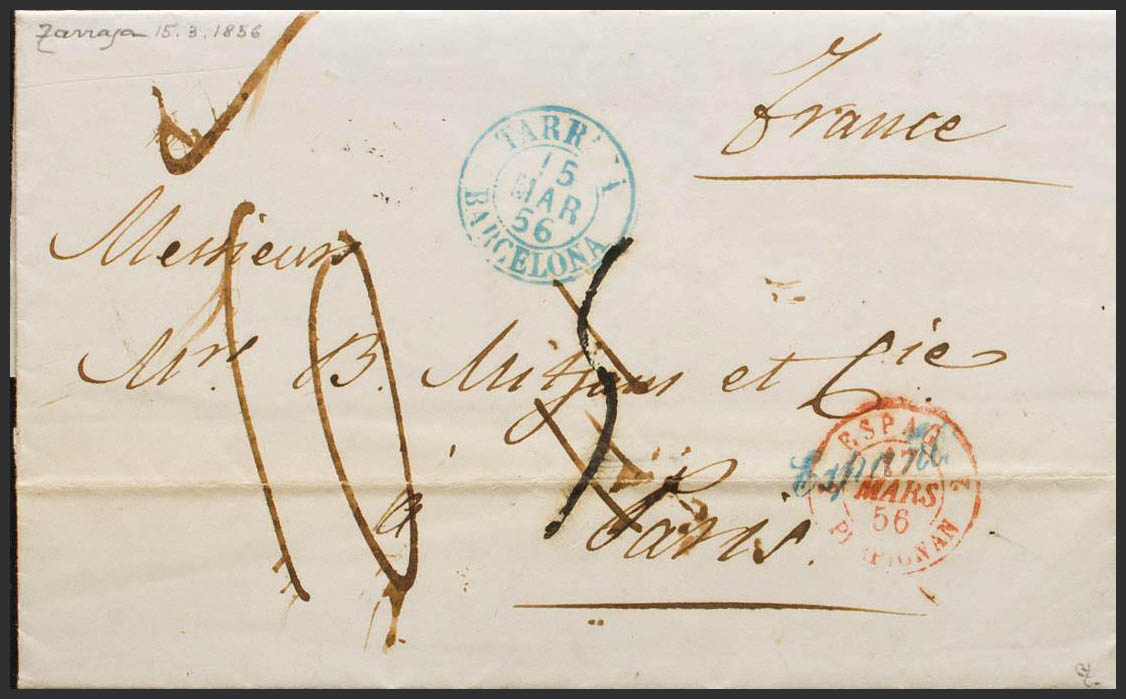 Zarrasa 15.3.1856
France
TARR A
15
MAR
56
BARCELONA
Messieurs
Mrs. B. Mitjans et Cie
10
à
Paris.
España
ESPAG
17
MARS
56
2
PERPIGNAN 2